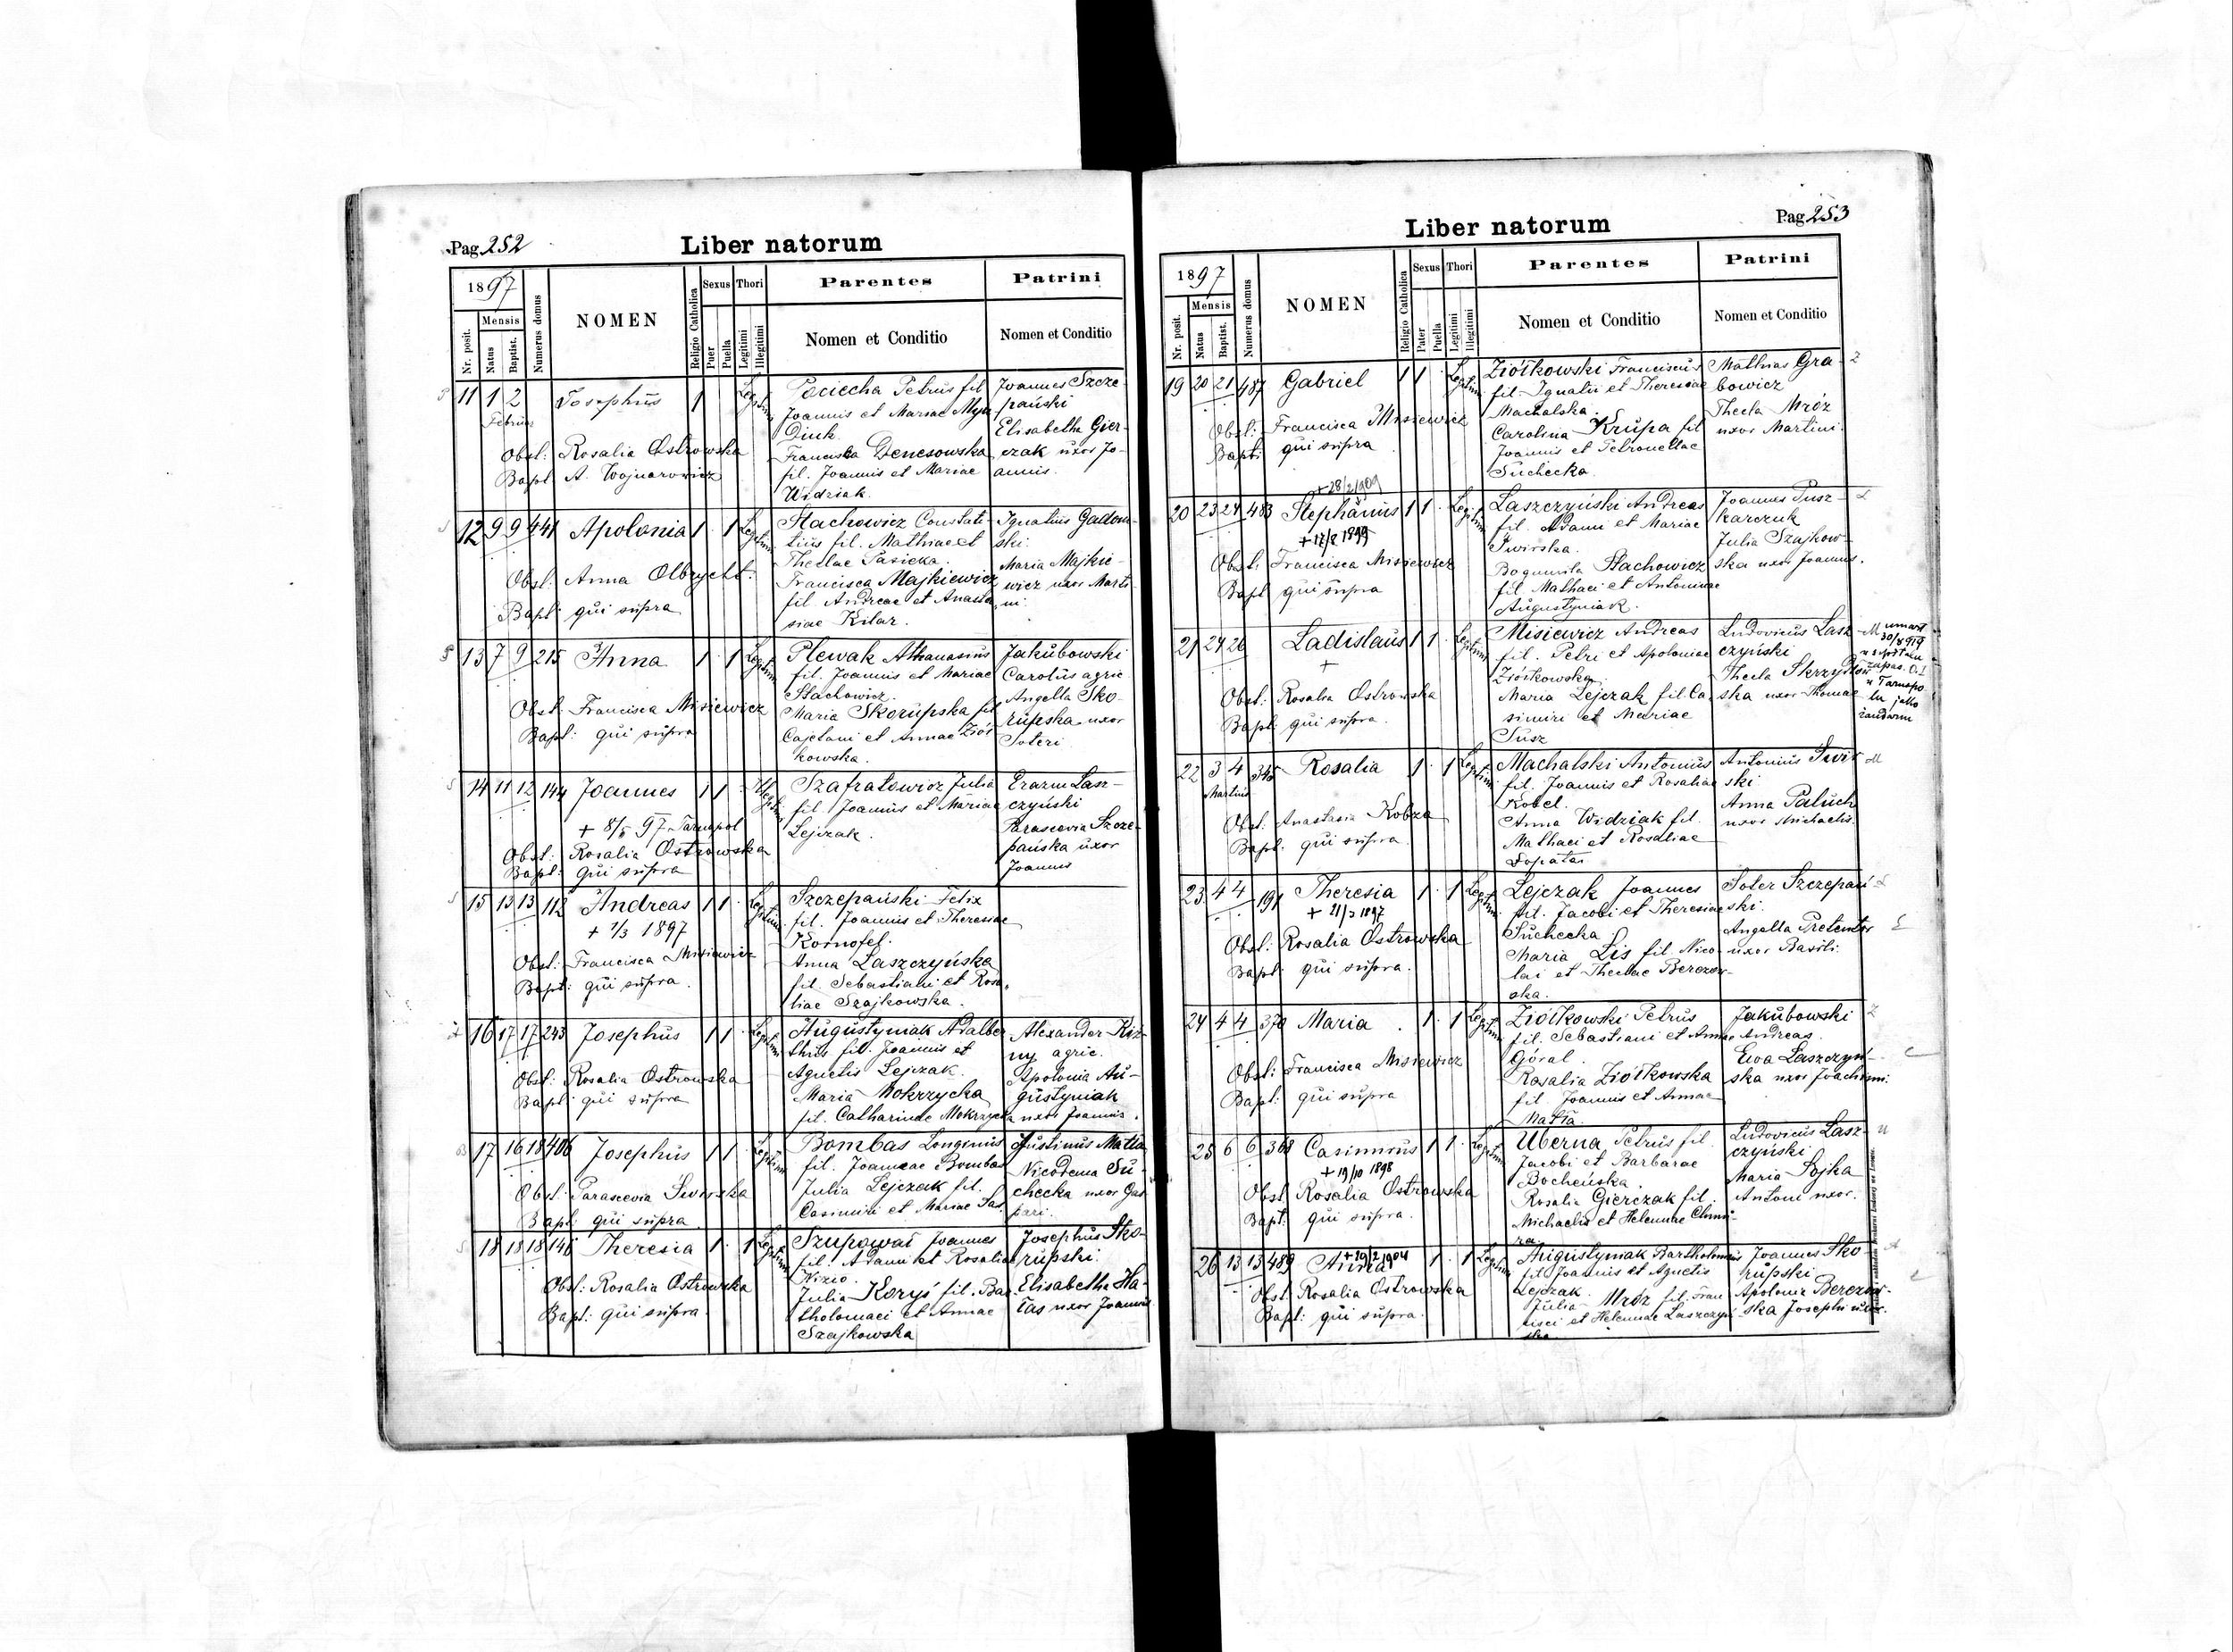 Pag 252
Liber natorum
1897
Mensis
Nr. posit.
Natus
Baptist.
Numerus domus
NOMEN
Religio Catholica
Sexus
Puer
Puella
Thori
Legitimi
Illegitimi
Parentes
Nomen et Conditio
Patrini
Nomen et Conditio
11 1 2 Josephus 1 Legitimi Pociecha Petrus fil Joannes Szcze-
Joannis et Mariae pański
Elisabetha Gier-
Obst: Rosalia Ostrowska Francisca Denesowska czak uxor Jo-
Bapt: A. Wojnarowicz fil. Joannis et Mariae annis.
Widziak.
12 9 9 441 Apolonia 1 1 Legitimi Stachowicz Constan- Ignatius Gadom-
tius fil. Mathiae et ski.
Theclae Pasieka. Maria Majkie-
Obst: Anna Olbrycht. Francisca Majkiewicz wicz uxor Marti-
fil Andreae et Anasta- ni.
Bapt: qui supra siae Kilar.
13 7 9 215 Anna 1 1 Legitimi Plewak Athanasius Jakubowski
fil. Joannis et Mariae Carolus agric
Stachowicz. Angella Sko-
Obst: Francisca Misiewicz Maria Skorupska fil rupska uxor
Bapt: qui supra Cajetani et Annae Ziół- Soteri
kowska.
14 11 12 144 Joannes 1 1 Illegitimi Szafratowicz Julia Erazm Lasz-
fil. Joannis et Mariae czyński
+ 8/5 97 Tarnopol Lejczak. Parascevia Szcze-
Obst: Rosalia Ostrowska pańska uxor
Bapt: qui supra Joannis
15 13 13 112 Andreas 1 1 Legitimi Szczepański Felix
+ 7/3 1897 fil. Joannis et Theresiae
Kornofel.
Obst: Francisca Misiewicz Anna Laszczyńska
Bapt: qui supra. fil. Sebastiani et Rosa-
liae Szajkowska.
16 17 17 243 Josephus 1 1 Legitimi Augustyniak Adalber- Alexander Kiz-
thus fil. Joannis et ny agric.
Obst: Rosalia Ostrowska Agnetis Lejczak. Apolonia Au-
Bapt: qui supra Maria Mokrzycka gustyniak
fil. Catharinae Mokrzycka uxor Joannis.
17 16 18 406 Josephus 1 1 Legitimi Bombas Longinus Justinus Matla
fil. Joannae Bombas Nicodema Su-
Obst: Parascevia Swirska Julia Lejczak fil. checka uxor Gas-
Bapt: qui supra Casimiri et Mariae pari.
18 18 18 146 Theresia 1 1 Legitimi Szupował Joannes Josephus Sko-
fil. Adami et Rosaliae rupski.
Obst: Rosalia Ostrowska Nizio. Elisabetha Ha-
Bapt: qui supra. Julia Koryś fil. Bar- łas uxor Joannis
tholomaei et Annae
Szajkowska
Pag 253
Liber natorum
1897
Mensis
Nr. posit.
Natus
Baptist.
Numerus domus
NOMEN
Religio Catholica
Sexus
Pater
Puella
Thori
Legitimi
Illegitimi
Parentes
Nomen et Conditio
Patrini
Nomen et Conditio
19 20 21 487 Gabriel 1 1 Legitimi Ziółkowski Franciscus Mathias Gra- Z
fil. Ignatii et Theresiae bowicz
Machalska. Thecla Mróz
Obst: Francisca Misiewicz Carolina Krupa fil uxor Martini.
Bapt: qui supra Joannis et Petronellae
Suchecka.
+ 28/2 1909
20 23 24 483 Stephanus 1 1 Legitimi Laszczyński Andreas Joannes Pusz- L
fil. Adami et Mariae karczuk
Swirska. Julia Szajkow-
Obst: Francisca Misiewicz Bogumila Stachowicz ska uxor Joannis.
Bapt: qui supra fil. Mathaei et Antoninae
Augustyniak.
21 24 26 Ladislaus 1 1 Legitimi Misiewicz Andreas Ludovicus Lasz- M umarł
+ fil. Petri et Apoloniae czyński
Ziółkowska.
Obst: Rosalia Ostrowska Maria Lejczak fil. Ca- ska uxor Thomae
Bapt: qui supra. simiri et Mariae
Susz
22 3 4 345 Rosalia 1 1 Legitimi Machalski Antonius Antonius Świr- M
Martius fil. Joannis et Rosaliae ski
Kobel. Anna Paluch
Obst: Anastasia Kobza Anna Widziak fil. uxor Michaelis.
Bapt: qui supra Mathaei et Rosaliae
Łopata
23 4 4 191 Theresia 1 1 Legitimi Lejczak Joannes Soter Szczepań- L
+ 21/3 1897 fil. Jacobi et Theresiae ski.
Suchecka. Angella Pretentor
Obst: Rosalia Ostrowska Maria Lis fil Nico- uxor Basili.
Bapt: qui supra. lai et Theclae Berezow-
ska.
24 4 4 370 Maria 1 1 Legitimi Ziółkowski Petrus Jakubowski Z
fil. Sebastiani et Annae Andreas.
Góral. Ewa Laszczyń-
Obst: Francisca Misiewicz Rosalia Ziółkowska ska uxor Joachimi.
Bapt: qui supra fil Joannis et Annae
Matła.
25 6 6 368 Casimirus 1 1 Legitimi Uberna Petrus fil. Ludovicus Lasz- U
+ 19/10 1898 Jacobi et Barbarae czyński
Bocheńska. Maria Sojka
Obst: Rosalia Ostrowska Rosalia Gierczak fil. Antoni uxor.
Bapt: qui supra. Michaelis et Helenae Chmu-
ra.
26 13 13 489 Anna + 29/2 1904 1 1 Legitimi Augustyniak Bartholomeus Joannes Sko- A
fil Joannis et Agnetis rupski
Obst: Rosalia Ostrowska Lejczak. Apolonia Berezow-
Bapt: qui supra. Julia Mróz fil. Fran- ska Josephi uxor.
cisci et Helenae Laszczyń-
ska